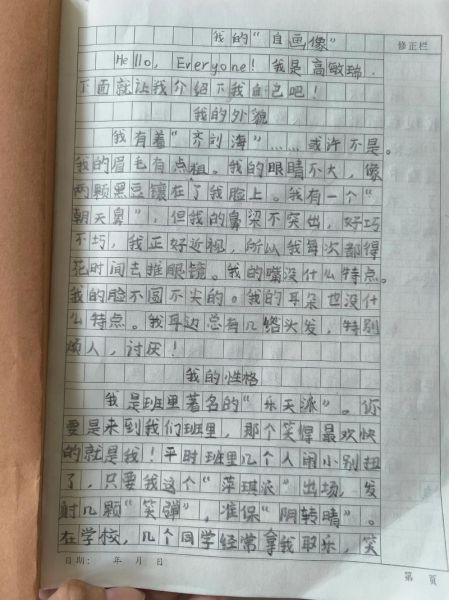 我的“自画像”
修正栏
Hello, Everyone! 我是高敏瑞.
下面就让我介绍下我自己吧!
我的外貌
我有着“齐刘海”……或许不是。
我的眉毛有点粗。我的眼睛不大,像
两颗黑豆镶在了我脸上。我有一个“
朝天鼻”,但我的鼻梁不突出,好巧
不巧,我正好近视,所以我每次都得
花时间去推眼镜。我的嘴没什么特点。
我的脸不圆不尖的。我的耳朵也没什
么特点。我耳边总有几绺头发,特别
烦人,讨厌!
我的性格
我是班里著名的“乐天派”。你
要是来到我们班里,那个笑得最欢快
的就是我!平时班里几个人闹小别扭
了,只要我这个“萍琪派”出场,发
射几颗“笑弹”,准保“阴转晴”。
在学校,几个同学经常拿我取乐,笑
日期: 年 月 日
第 页